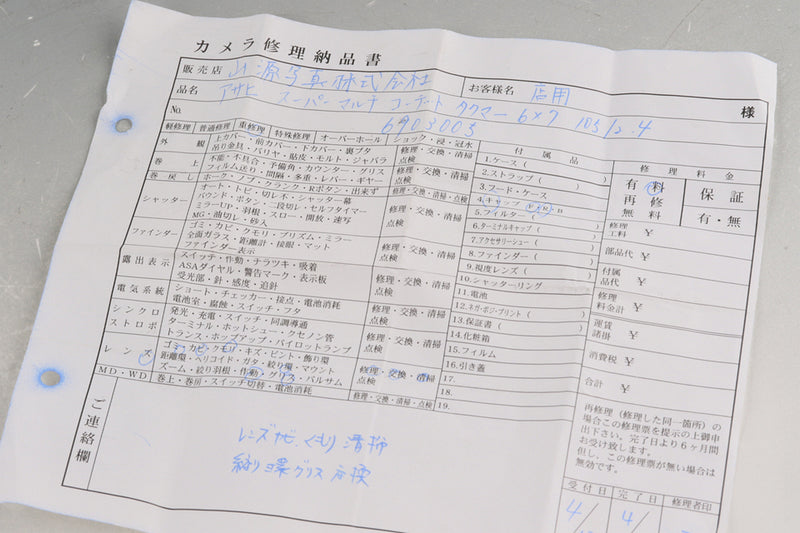 カメラ修理納品書
販売店 山源写真株式会社 お客様名 店用 様
品名 アサヒ スーパーマルチ コーテート タクマー 6×7 105/2.4
No. 6903003
軽修理 普通修理 重修理 特殊修理 オーバーホール ショック・浸・冠水
外観 上カバー・前カバー・下カバー・裏ブタ
吊り金具・バリヤ・貼皮・モルト・ジャバラ
修理・交換・清掃
点検
巻上 不能・不具合・予備角・カウンター・グリス
フィルム送り・間隔・多重・レバー・ギヤー
修理・交換・清掃
点検
巻戻し ホーク・ノブ・クランク・Rボタン・出来ず 修理・交換・清掃・点検
シャッター オート・トビ・切レ不・シャッター幕
バウンド・ボタン・二段切レ・セルフタイマー
ミラーUP・羽根・スロー・開放・速写
MG・油切レ・砂入
修理・交換・清掃
点検
ファインダー ゴミ・カビ・クモリ・プリズム・ミラー
全面ガラス・距離計・接眼・マット
ファインダー表示
修理・交換・清掃
点検
露出表示 スイッチ・作動・チラツキ・吸着
ASAダイヤル・警告マーク・表示板
受光部・針・感度・追針
修理・交換・清掃
点検
電気系統 ショート・チェッカー・接点・電池消耗
電池室・腐蝕・スイッチ・フタ
修理・交換・清掃
点検
シンクロ
ストロボ
発光・充電・スイッチ・同調導通
ターミナル・ホットシュー・クセノン管
トランス・ホップアップ・パイロットランプ
修理・交換・清掃
点検
レンズ ゴミ・カビ・クモリ・キズ・ピント・飾り環
距離環・ヘリコイド・ガタ・絞り環・マウント
ズーム・絞り羽根・作動・グリス・バルサム
修理・交換・清掃
点検
MD・WD 巻上・巻戻・スイッチ切替・電池消耗 修理・交換・清掃・点検
付属品
1.ケース(
2.ストラップ(
3.フード・ケース
4.キャップ F・R・B
5.フィルター(
6.ターミナルキャップ(
7.アクセサリーシュー(
8.ファインダー(
9.視度レンズ(
10.シャッターリング
11.電池
12.ネガ・ポジ・プリント(
13.保証書(
14.化粧箱
15.フィルム
16.引き蓋
17.
18.
19.
修理料金
有料 保証
再修
無料 有・無
修理
工料 ¥
部品代 ¥
付属
品代 ¥
修理
料金計 ¥
運賃
諸掛 ¥
消費税 ¥
合計 ¥
再修理(修理した同一箇所)の
場合この修理票を提示の上御申
出下さい。完了日より6ヶ月間
お受け致します。
但し、この修理票が無い場合は
無効です。
受付日 完了日 修理者印
4/ 4/
ご連絡欄
レンズカビ、くもり 清掃
絞り環グリス 交換